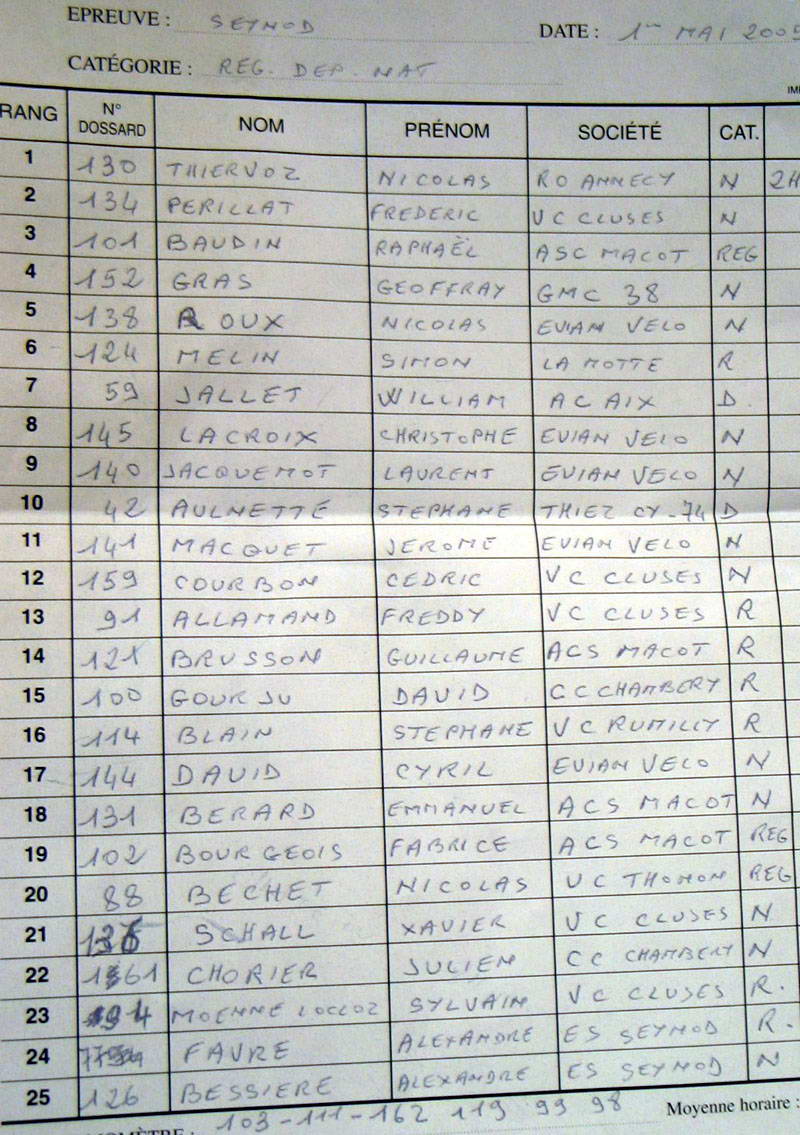 EPREUVE : SEYNOD DATE : 1er MAI 2005
CATÉGORIE : REG. DEP. NAT
RANG N° DOSSARD NOM PRÉNOM SOCIÉTÉ CAT.
1 130 THIERVOZ NICOLAS RO ANNECY N 2H
2 134 PERILLAT FREDERIC VC CLUSES N
3 101 BAUDIN RAPHAËL ASC MACOT REG
4 152 GRAS GEOFFRAY GMC 38 N
5 138 ROUX NICOLAS EVIAN VELO N
6 124 MELIN SIMON LA MOTTE R
7 59 JALLET WILLIAM AC AIX D.
8 145 LACROIX CHRISTOPHE EVIAN VELO N
9 140 JACQUEMOT LAURENT EVIAN VELO N
10 42 AULNETTE STEPHANE THIEZ CY-74 D
11 141 MACQUET JEROME EVIAN VELO N
12 159 COURBON CEDRIC VC CLUSES N
13 91 ALLAMAND FREDDY VC CLUSES R
14 121 BRUSSON GUILLAUME ACS MACOT R
15 100 GOURJU DAVID CC CHAMBERY R
16 114 BLAIN STEPHANE VC RUMILLY R
17 144 DAVID CYRIL EVIAN VELO N
18 131 BERARD EMMANUEL ACS MACOT N
19 102 BOURGEOIS FABRICE ACS MACOT REG
20 88 BECHET NICOLAS VC THONON REG
21 SCHALL XAVIER VC CLUSES N
22 CHORIER JULIEN CC CHAMBERY N
23 MOENNE LOCCOZ SYLVAIN VC CLUSES R.
24 FAVRE ALEXANDRE ES SEYNOD R.
25 126 BESSIERE ALEXANDRE ES SEYNOD N
103-111-162 119 99 98 Moyenne horaire :